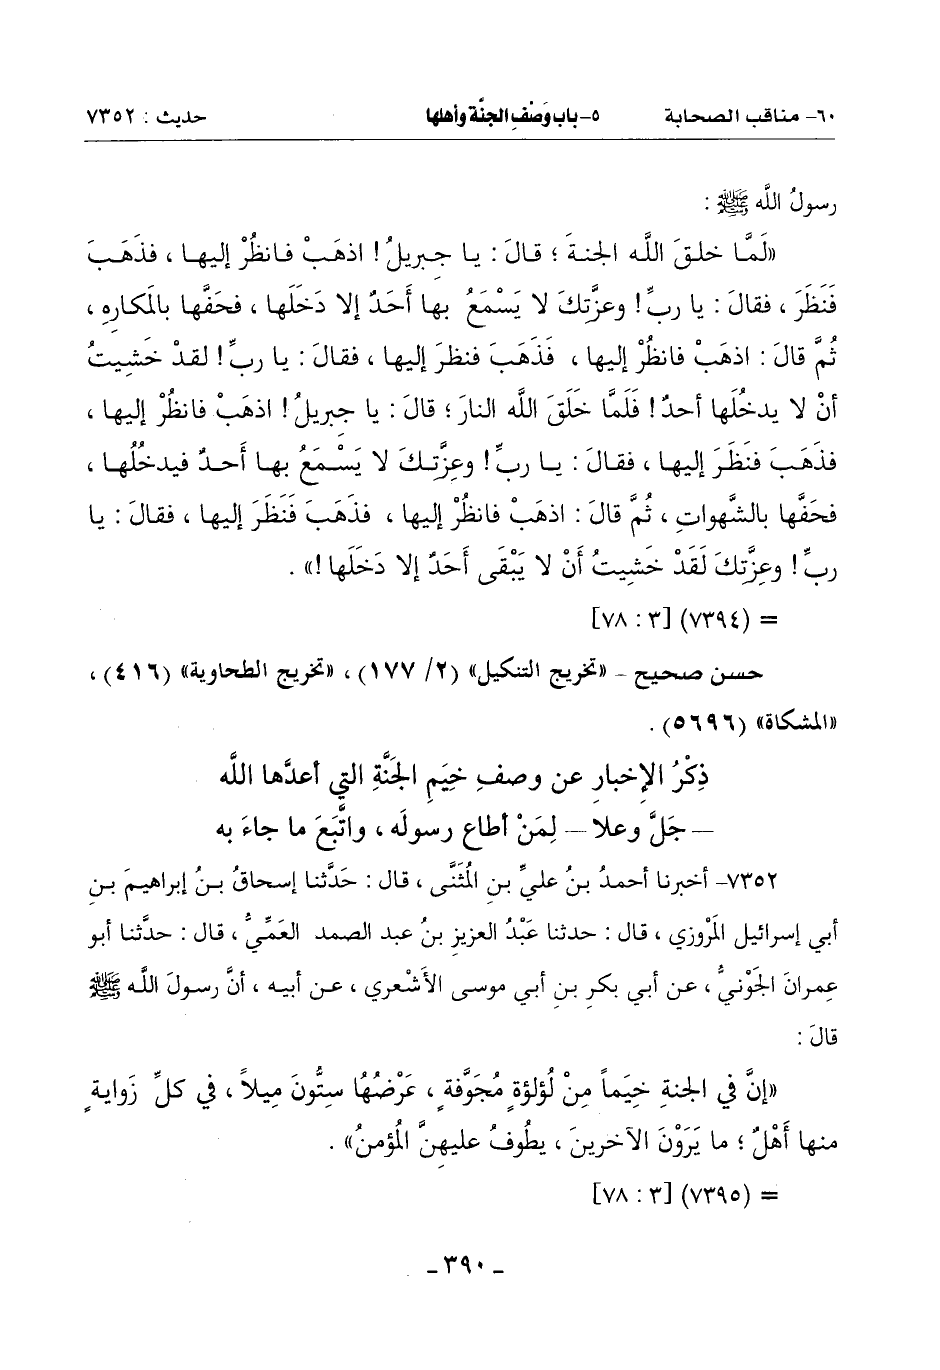 ٦٠- مناقب الصحابة ٥- باب وَصْفِ الجنَّة وأهلها حديث : ٧٣٥٢
رسولُ اللَّه ﷺ :
«لَمَّا خلقَ اللَّه الجنةَ ؛ قالَ : يا جبريلُ ! اذهَبْ فانظُرْ إليها ، فذَهَبَ
فَنَظَرَ ، فقالَ : يا ربِّ ! وعزَّتِكَ لا يَسْمَعُ بها أَحَدٌ إلا دَخَلَها ، فحَفَّها بالمَكارِهِ ،
ثُمَّ قالَ : اذهَبْ فانظُرْ إليها ، فَذَهَبَ فنظرَ إليها ، فقالَ : يا ربِّ ! لقدْ خَشِيتُ
أنْ لا يدخُلَها أحدٌ ! فَلَمَّا خَلَقَ اللَّه النارَ ؛ قالَ : يا جبريلُ ! اذهَبْ فانظُرْ إليها ،
فذَهَبَ فَنَظَرَ إليها ، فقالَ : يا ربِّ ! وعِزَّتِكَ لا يَسْمَعُ بها أَحدٌ فيدخُلُها ،
فحَفَّها بالشَّهواتِ ، ثُمَّ قالَ : اذهَبْ فانظُرْ إليها ، فذَهَبَ فَنَظَرَ إليها ، فقالَ : يا
ربِّ ! وعِزَّتِكَ لَقَدْ خَشِيتُ أَنْ لا يَبْقَى أَحَدٌ إلا دَخَلَها !» .
= (٧٣٩٤) [٣ : ٧٨]
حسن صحيح – «تخريج التنكيل» (٢/ ١٧٧) ، «تخريج الطحاوية» (٤١٦) ،
«المشكاة» (٥٦٩٦) .
ذِكْرُ الإخبار عن وصفِ خِيَمِ الجَنَّةِ التي أعدَّها اللَّه
– جَلَّ وعلا – لِمَنْ أطاع رسولَه ، واتَّبَعَ ما جاءَ به
٧٣٥٢- أخبرنا أحمدُ بنُ عليِّ بنِ المُثَنَّى ، قال : حَدَّثنا إسحاقُ بنُ إبراهيمَ بنِ
أبي إسرائيل المَرْوزي ، قال : حدثنا عَبْدُ العزيزِ بنُ عبد الصمد العَمِّيُّ ، قال : حدَّثنا أبو
عِمرانَ الجَوْنيُّ ، عن أبي بكرِ بنِ أبي موسى الأَشْعري ، عن أبيه ، أنَّ رسولَ اللَّه ﷺ
قالَ :
«إنَّ في الجنةِ خِيَماً مِنْ لُؤلؤةٍ مُجَوَّفةٍ ، عَرْضُها ستُّونَ مِيلاً ، في كلِّ زَوايةٍ
منها أَهْلٌ ؛ ما يَرَوْنَ الآخرينَ ، يطُوفُ عليهِنَّ المُؤمنُ» .
= (٧٣٩٥) [٣ : ٧٨]
- ٣٩٠ -